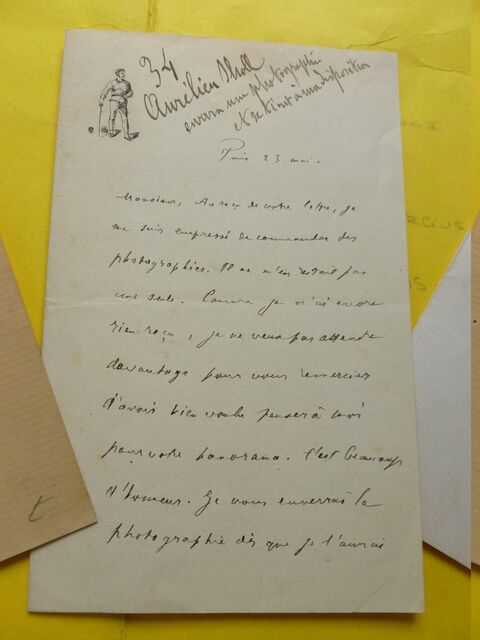 34
Aurélien Scholl
enverra une photographie
et se tient à ma disposition
Paris 23 mai.
Monsieur, Au reçu de votre lettre, je
me suis empressé de commander des
photographies. Il ne m'en restait pas
une seule. Comme je n'ai encore
rien reçu, je ne veux pas attendre
davantage pour vous remercier
d'avoir bien voulu penser à moi
pour votre panorama. C'est beaucoup
d'honneur. Je vous enverrai la
photographie dès que je l'aurai
t